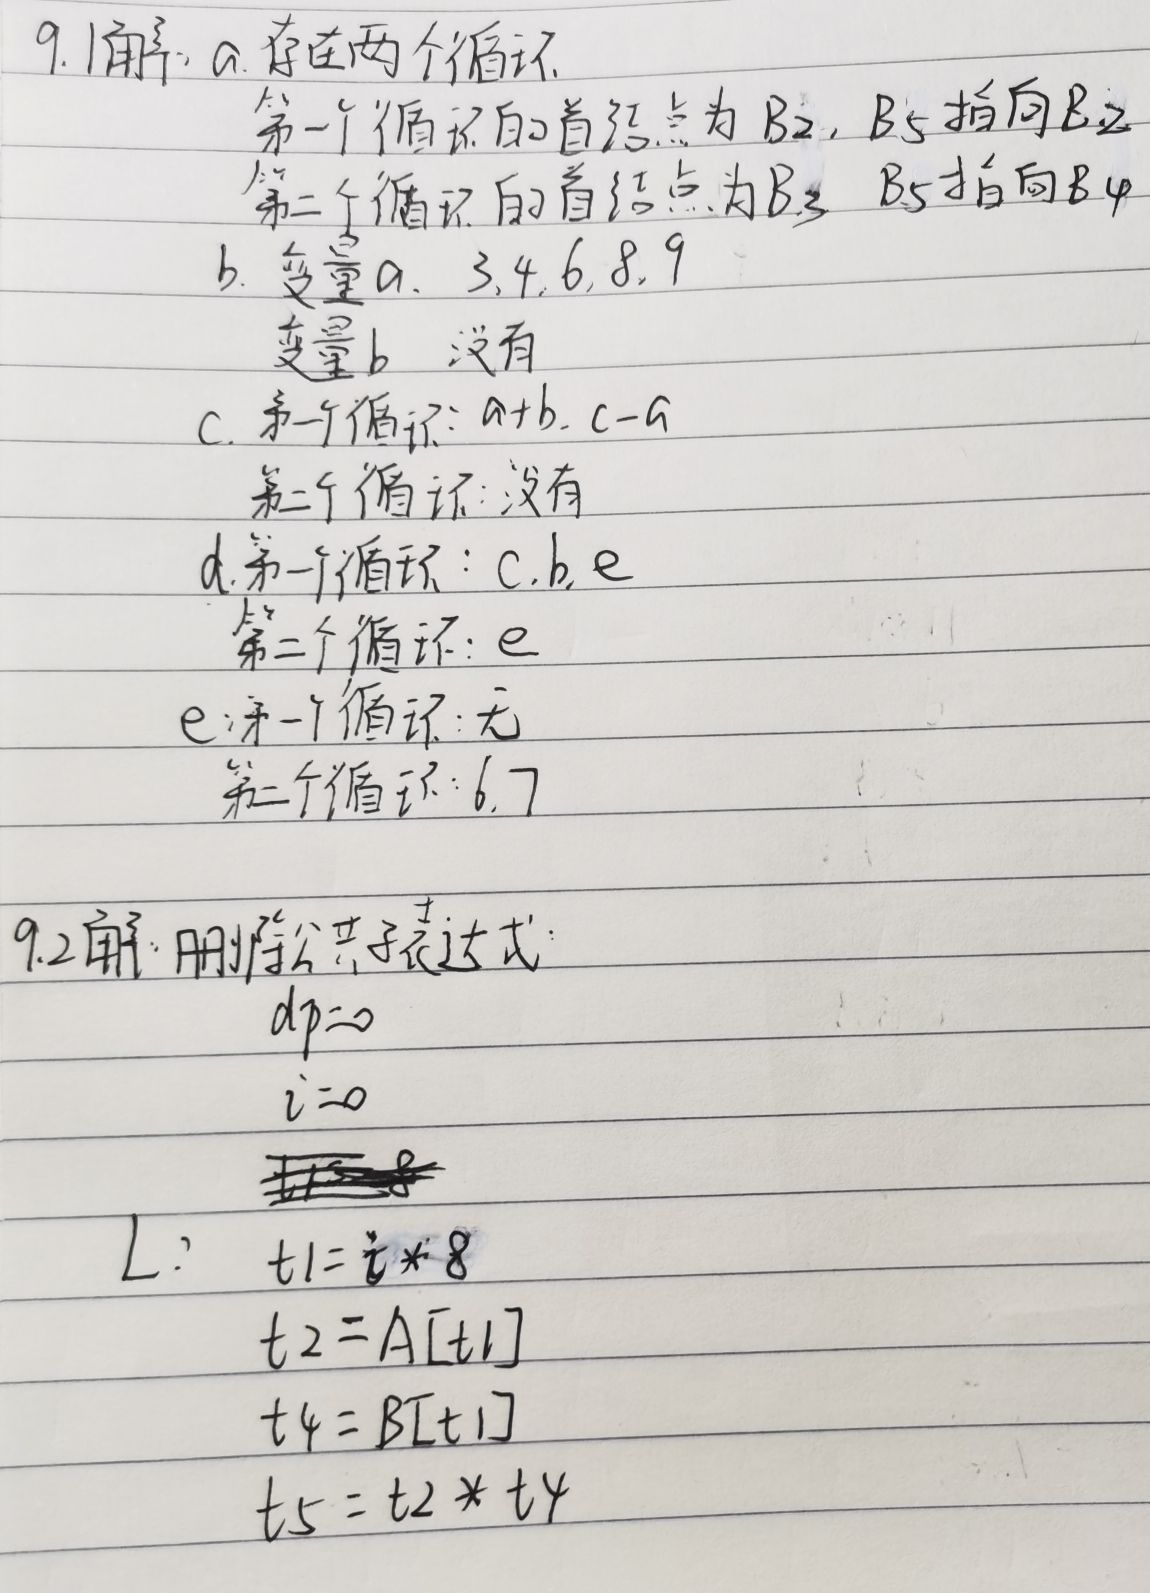 9.1解: a. 存在两个循环
第一个循环的首结点为B2, B5指向B2
第二个循环的首结点为B3 B5指向B4
b. 变量a. 3,4,6,8,9
变量b 没有
c. 第一个循环: a+b. c-a
第二个循环: 没有
d. 第一个循环: c.b.e
第二个循环: e
e: 第一个循环: 无
第二个循环: 6.7
9.2解: 删除公共子表达式:
dp=0
i=0
L: t1=i*8
t2=A[t1]
t4=B[t1]
t5=t2*t4